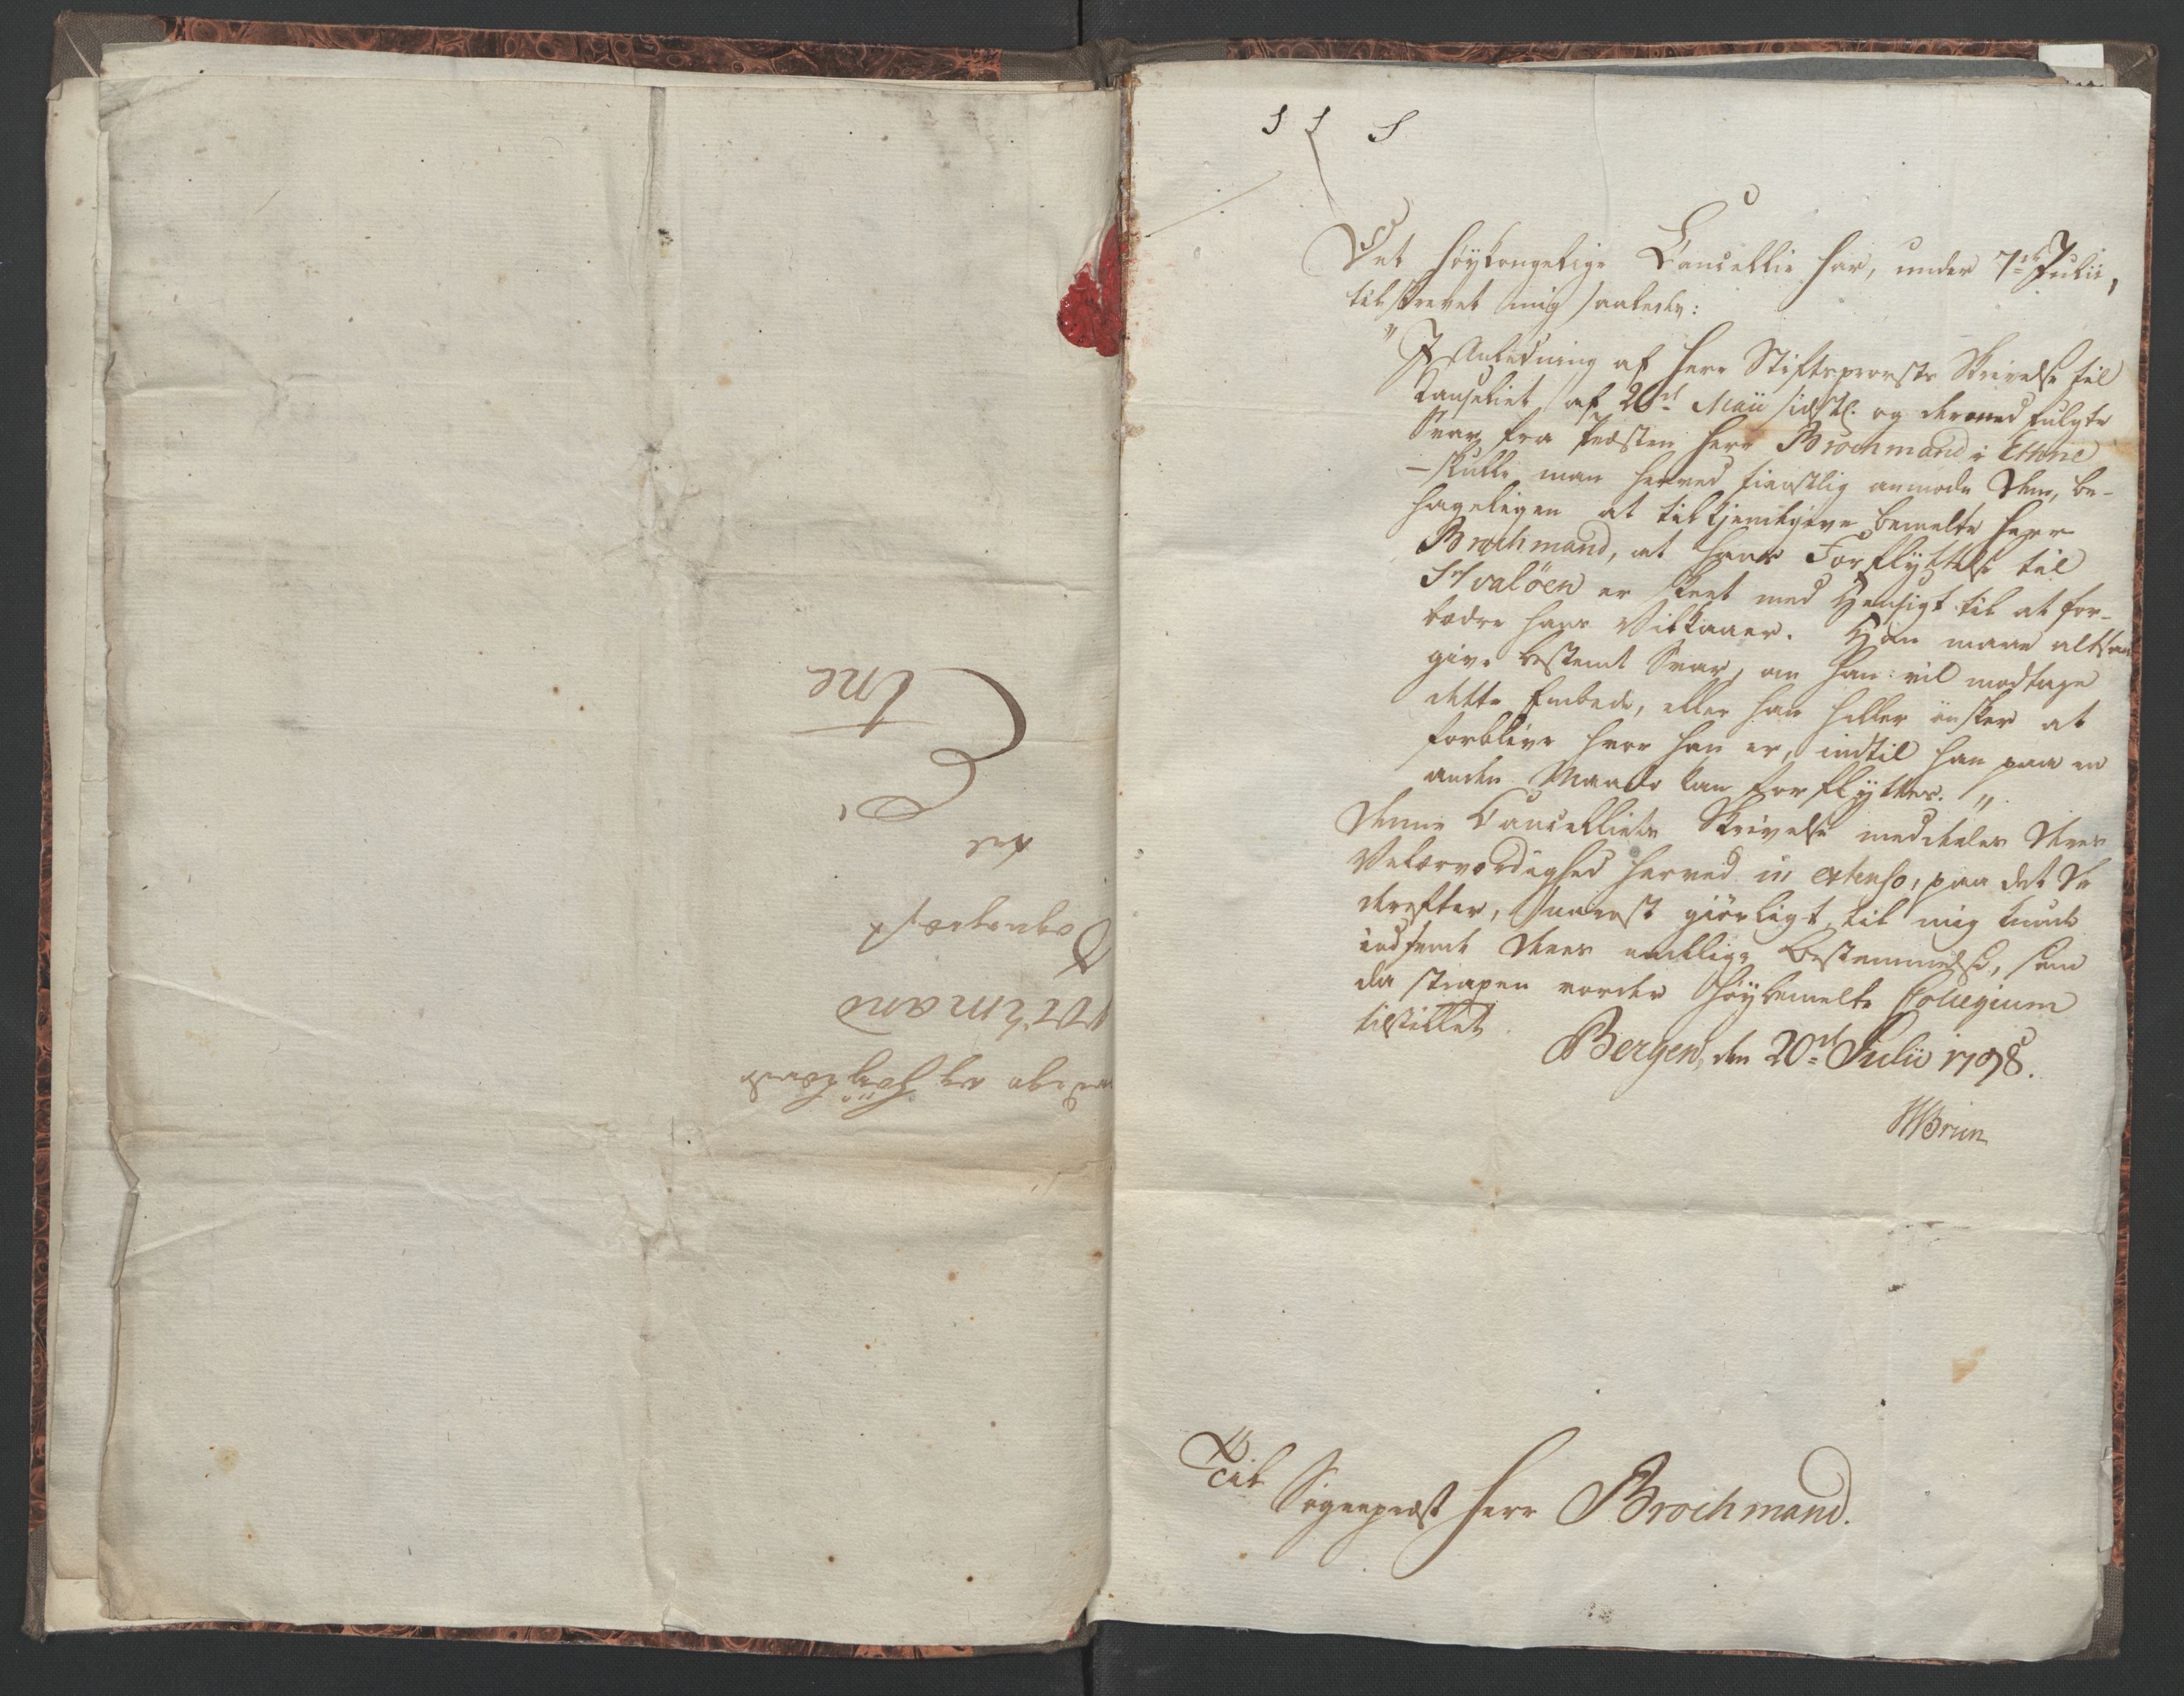 S S
Det Høykongelige Cancellie har, under 7de Julii,
tilskrevet mig saaledes:
"I Anledning af Herr Stiftsprovsts Skrivelse til
Kanseliet af 26de Maii sidstl. og dermed fulgte
Svar fra Præsten Herr Brochmand i Ethne
– skulle man herved tienstlig anmode Dem, be-
hageligen at tilkjendegive bemelte Herr
Brochmand, at hans Forflyttelse til
Hvaløen er skeet med Hensigt til at for-
bedre hans Vilkaaer. Han maae altsaa
give bestemt Svar, om han vil modtage
dette Embede, eller han heller ønsker at
forblive hvor han er, indtil han paa en
anden Maade kan forflyttes."
Denne Cancelliets Skrivelse meddeeles Deres
Velærværdighed herved in extenso, paa det De
derefter, snarest giörligt, til mig kunde
indsende Deres endelige Bestemmelse, som
da strax vorder Høybemelte Collegium
tilstillet.
Bergen, den 20de Julii 1798.
Brun
Til
Sognepræst Herr Brochmand.
og Høylærde
mand
Sognepræst
til
Etne